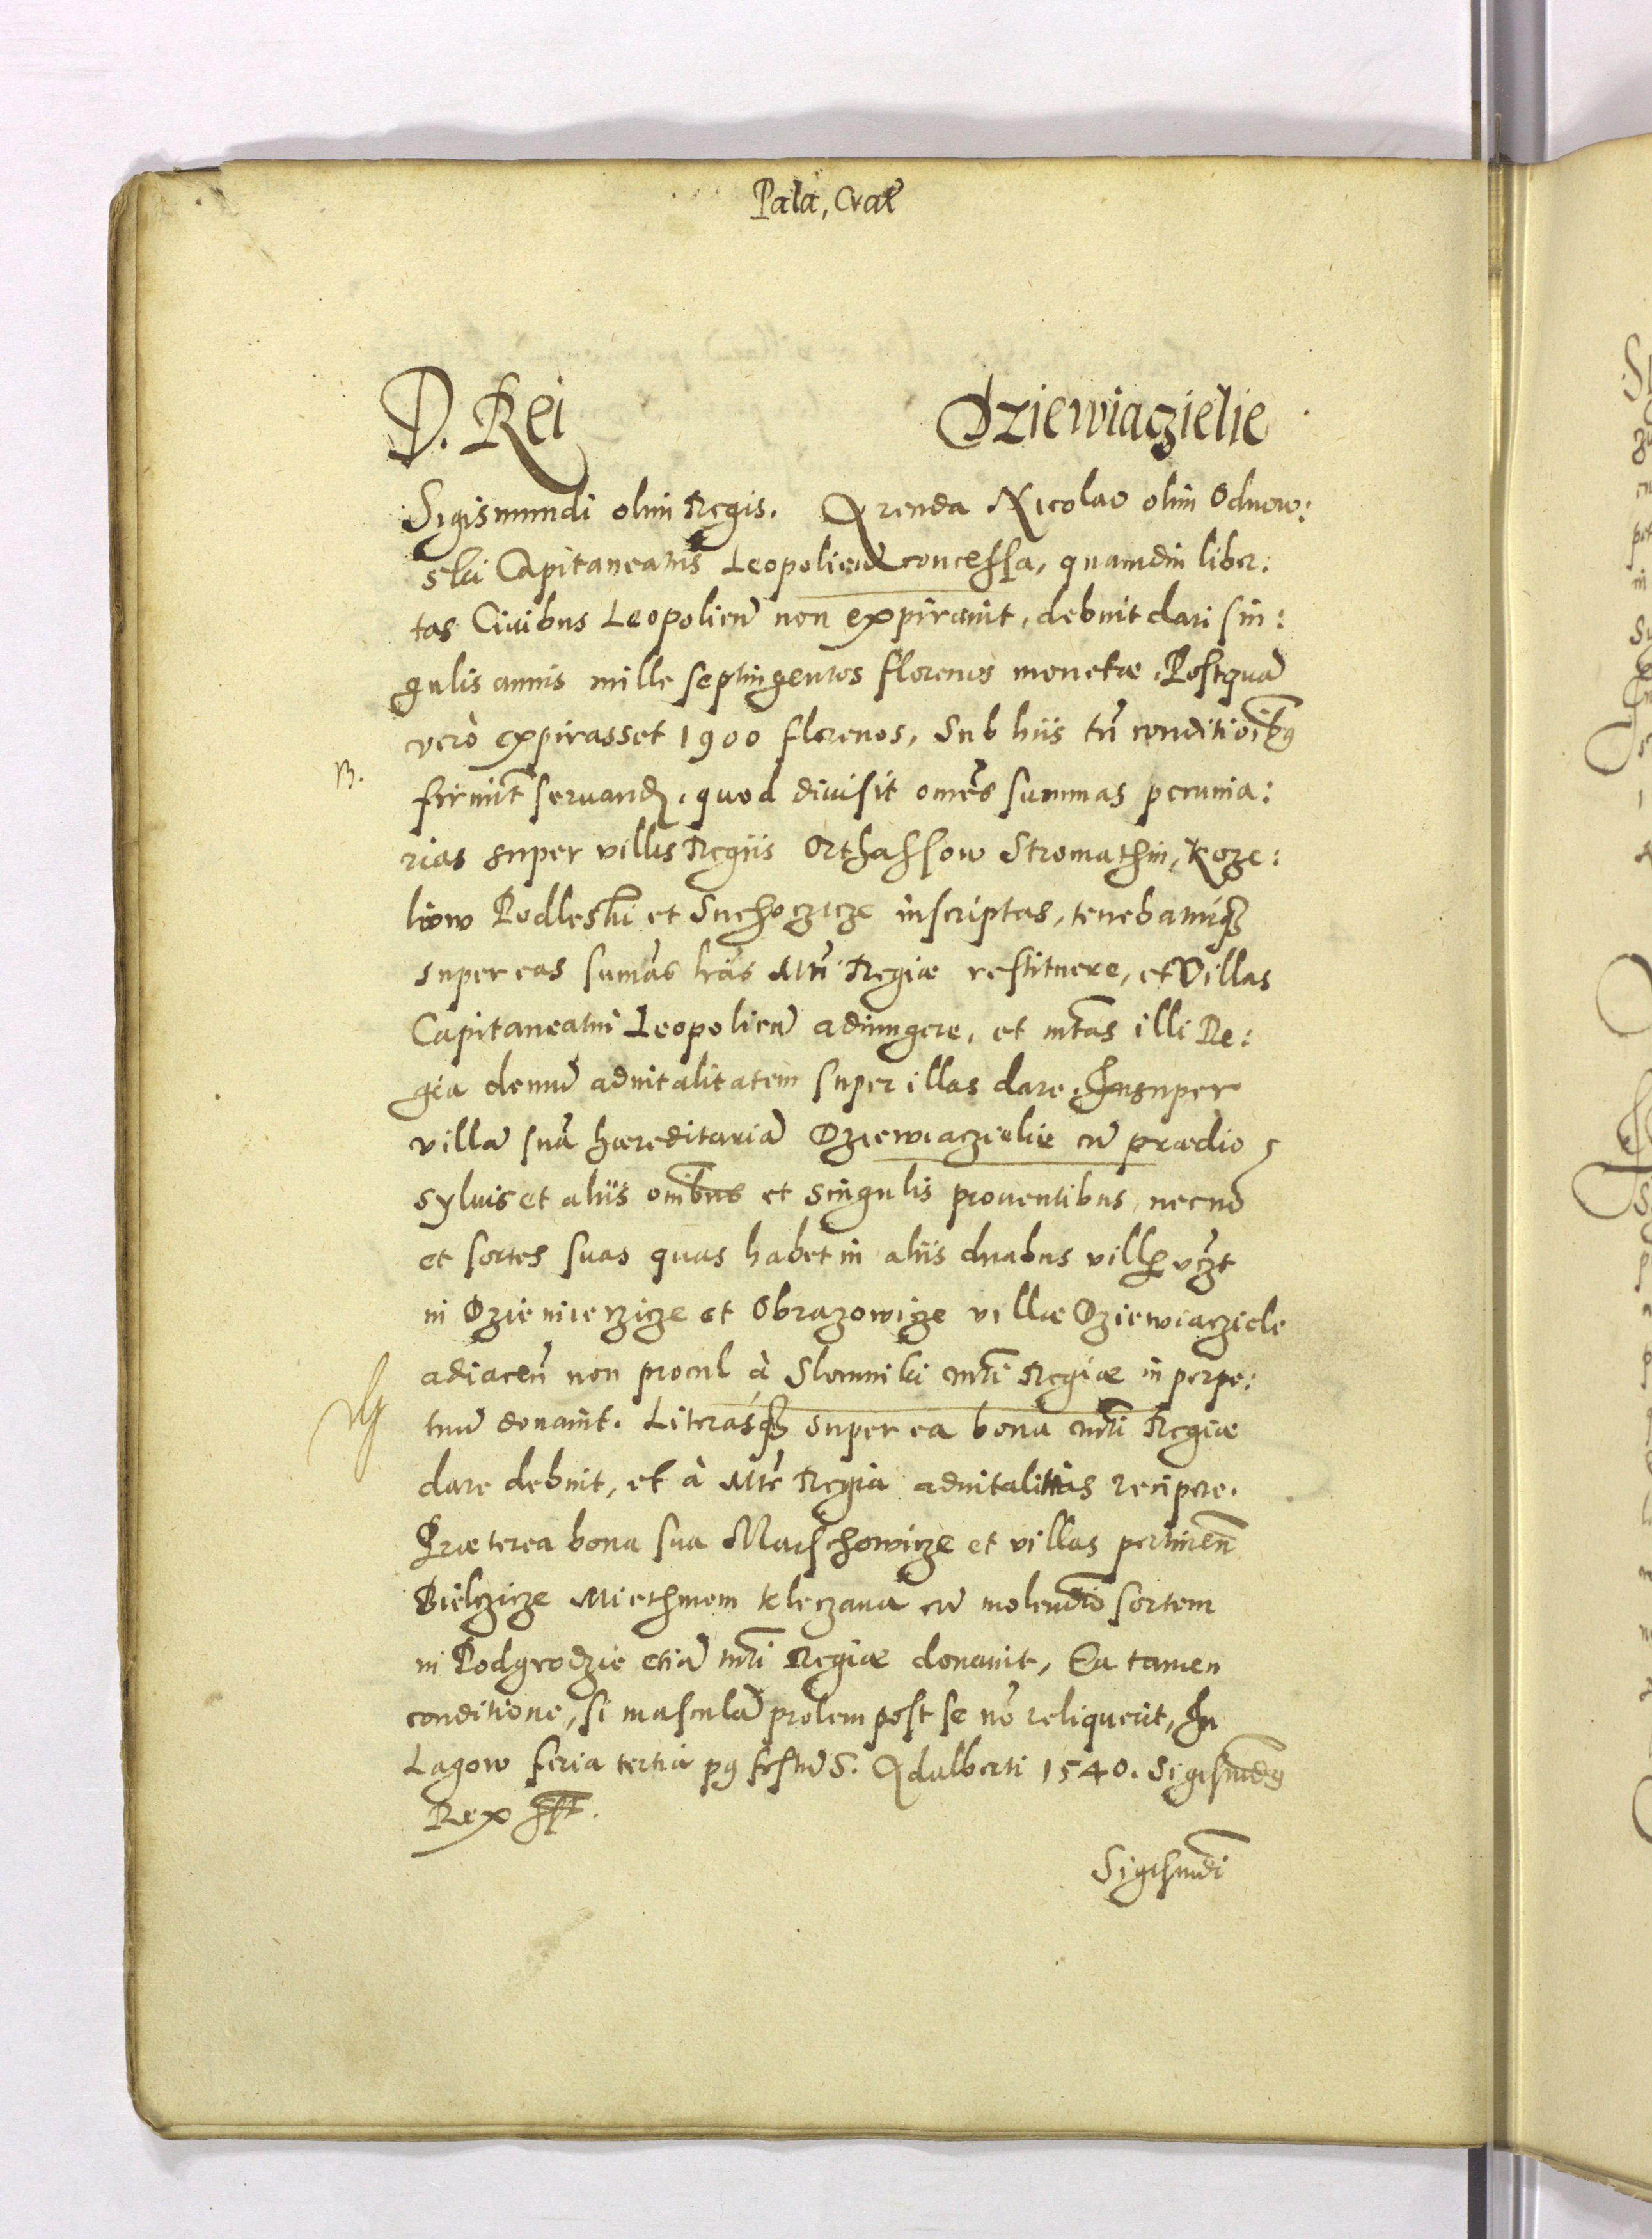 Pala, Crac̃
D. Rei Dziewiaczielie
Sigismundi olim Regis. Arenda Nicolao olim Odnow:
ski Capitaneatus Leopolien̄ concessa, quamdiu liber:
tas Ciuibus Leopolien̄ non expirauit, debuit dari sin:
gulis annis mille septingentos florenos monetæ. Postquā
verò expirasset 1900 florenos, Sub hiis tn̄ conditioībꝰ
firmit̃ seruand. quod diuisit omēs summas pecunia:
rias super villis Regiis Orthassow Stromathin, Koze:
liow Podleski et Suchoczicze inscriptas, tenebaturqꝫ
super eas sumās lrās Mti Regiæ restituere, et Villas
Capitaneatui Leopolien̄ adiungere, et mtas illi Re:
gia demū aduitalitatem super illas dare. Insuper
villā suā hæreditariā Dziewiaczielie cū prædio
syluis et aliis om̄ibus et singulis prouentibus, necnō
et sortes suas quas habet in aliis duabus vill vczt
in Dziemierzicze et Obrazowicze villæ Dziewiaczicle
adiacen̄ non procul à Slomniki mti Regiæ in perpe:
tuū donauit. Literasqꝫ super ea bona mti Regiæ
dare debuit, et à Mte Regia aduitalitias recipere.
Præterea bona sua Marschowicze et villas pertinen̄
Bielczicze Miethniow Kleczana cū molendīo sortem
in Podgrodzie etiā mti Regiæ donauit, Ea tamen
conditione, si masculā prolem post se nō reliquerit, In
Lagow feria tertia pꝰ festū S. Adalberti 1540. Sigismūdꝰ
Rex sst.
Sigismūdi